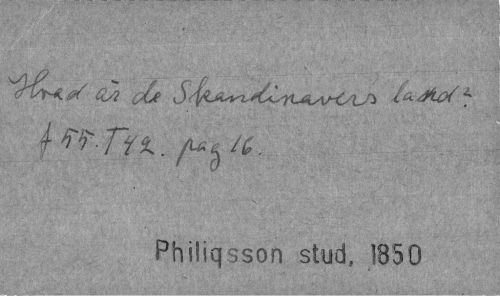 Hvad är de Skandinavers land?
A 55. T 42. pag 16.
Philiqsson stud, 1850